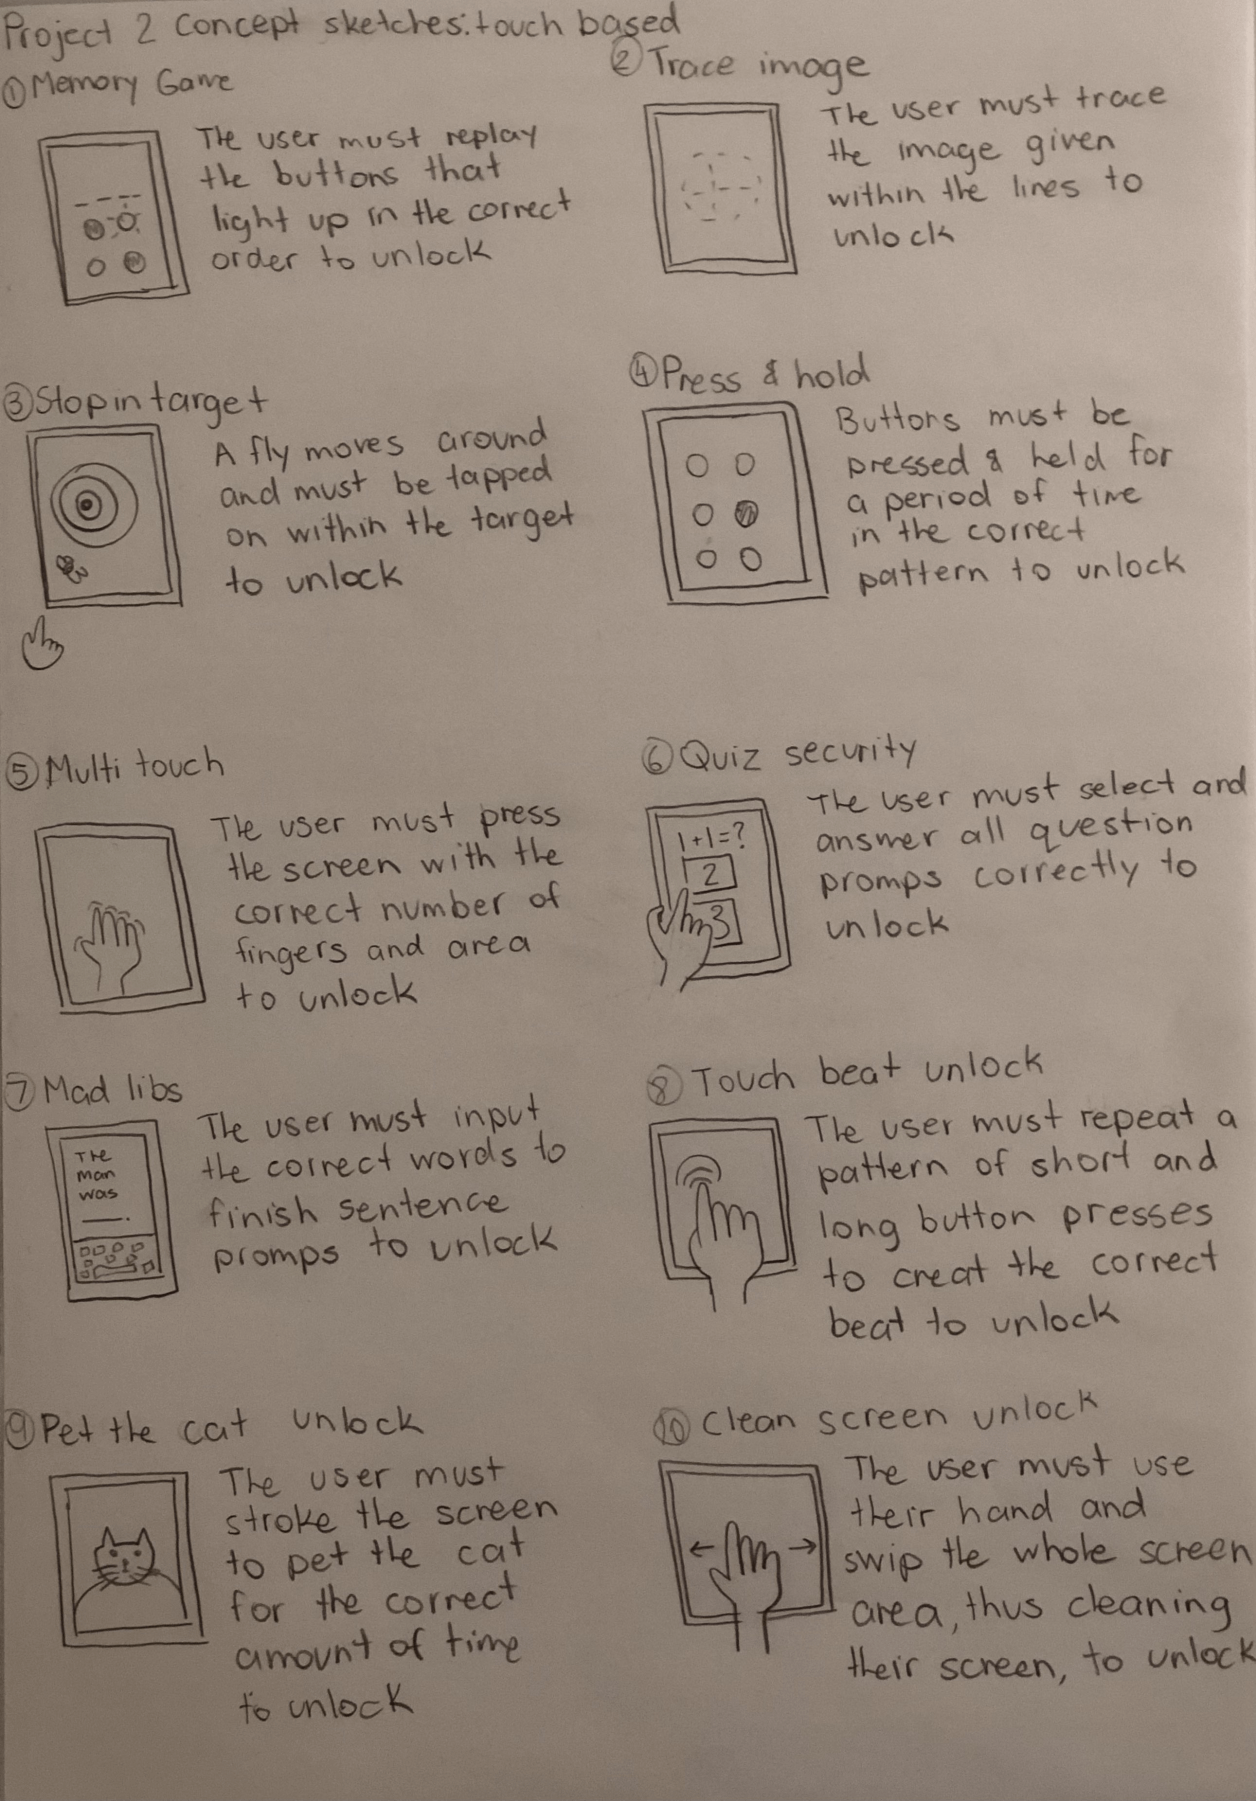 Project 2 Concept sketches: touch based
① Memory Game
The user must replay
the buttons that
light up in the correct
order to unlock
② Trace image
The user must trace
the image given
within the lines to
unlock
③ Stop in target
A fly moves around
and must be tapped
on within the target
to unlock
④ Press & hold
Buttons must be
pressed & held for
a period of time
in the correct
pattern to unlock
⑤ Multi touch
The user must press
the screen with the
correct number of
fingers and area
to unlock
⑥ Quiz security
1+1=?
2
3
The user must select and
answer all question
promps correctly to
unlock
⑦ Mad libs
The
man
was
___.
The user must input
the correct words to
finish sentence
promps to unlock
⑧ Touch beat unlock
The user must repeat a
pattern of short and
long button presses
to creat the correct
beat to unlock
⑨ Pet the cat unlock
The user must
stroke the screen
to pet the cat
for the correct
amount of time
to unlock
⑩ Clean screen unlock
The user must use
their hand and
swip the whole screen
area, thus cleaning
their screen, to unlock